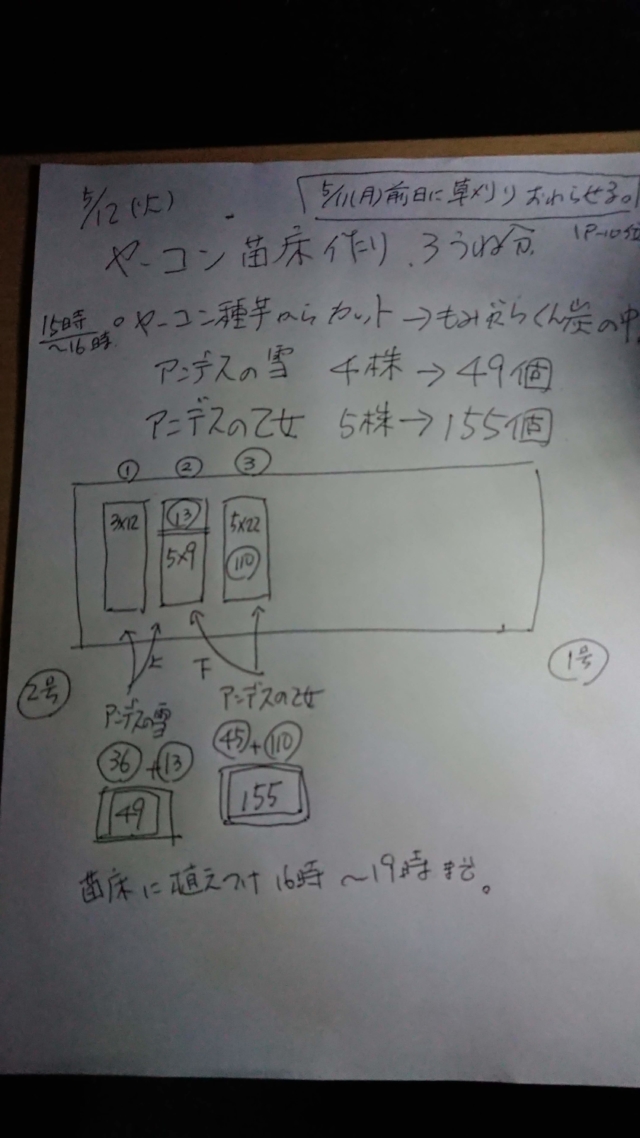 5/12(火)
5/11(月)前日に草刈りおわらせる。
ヤーコン苗床作り、3うね分
15時~16時。ヤーコン種芋からカット→もみがらくん炭の中
アンデスの雪 4株→49個
アンデスの乙女 5株→155個
① ② ③
3×12 13 5×22
5×9 110
上 下
2号 1号
アンデスの雪 アンデスの乙女
36+13 45+110
49 155
苗床に植えつけ 16時~19時まで。